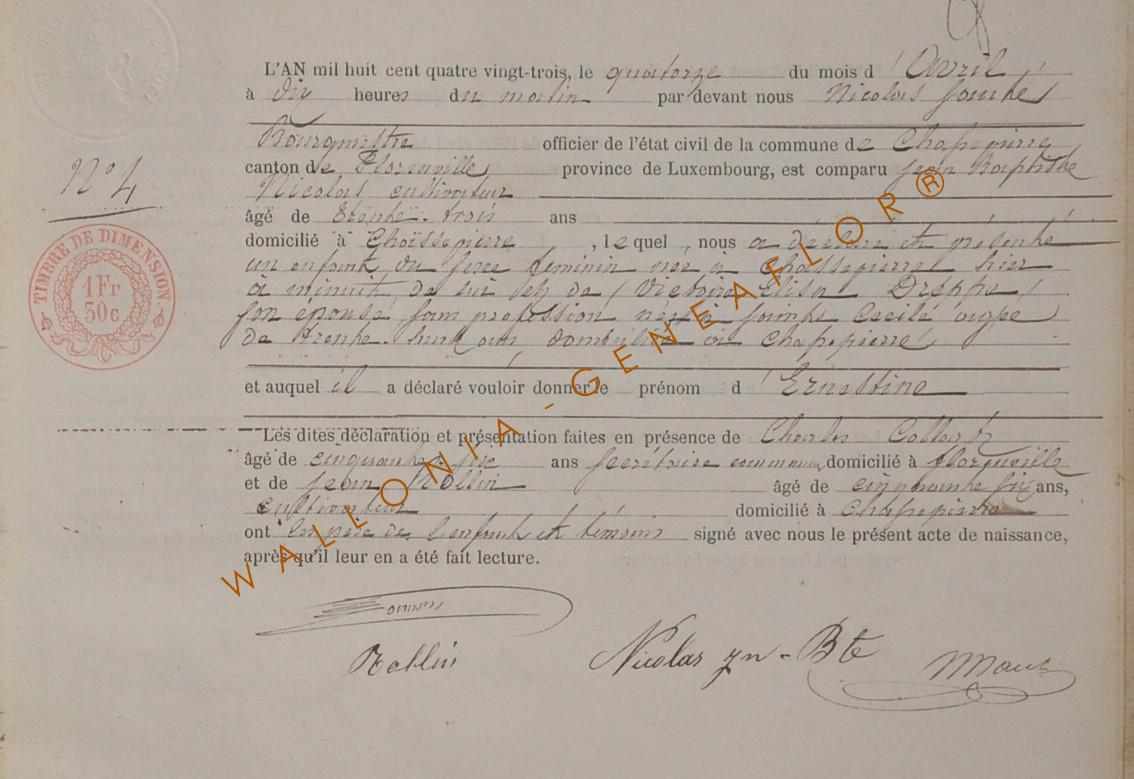 L'AN mil huit cent quatre vingt-trois, le quatorze du mois d'Avril
à dix heures du matin par devant nous Nicolas
Bourgmestre officier de l'état civil de la commune de Chassepierre
canton de Florenville, province de Luxembourg, est comparu Jean Baptiste
Nicolas cultivateur
N° 4
âgé de trente-trois ans
domicilié à Chassepierre, lequel, nous a déclaré et présenté
un enfant du sexe féminin née à Chassepierre hier
à minuit, de lui et de Victoire Elisa
son épouse, sans profession née à Sainte Cécile âgée
de trente-huit ans domiciliée à Chassepierre
et auquel il a déclaré vouloir donner le prénom d'Ernestine
Les dites déclaration et présentation faites en présence de Charles
âgé de cinquante ans secrétaire communal domicilié à Florenville
et de Jean Rollin âgé de cinquante six ans,
cultivateur domicilié à Chassepierre
ont le père de l'enfant et témoins signé avec nous le présent acte de naissance,
après qu'il leur en a été fait lecture.
TIMBRE DE DIMENSION
1 Fr
30 c
WALLONIA - GENEAFLOR®
Rollin Nicolas jn-Bte